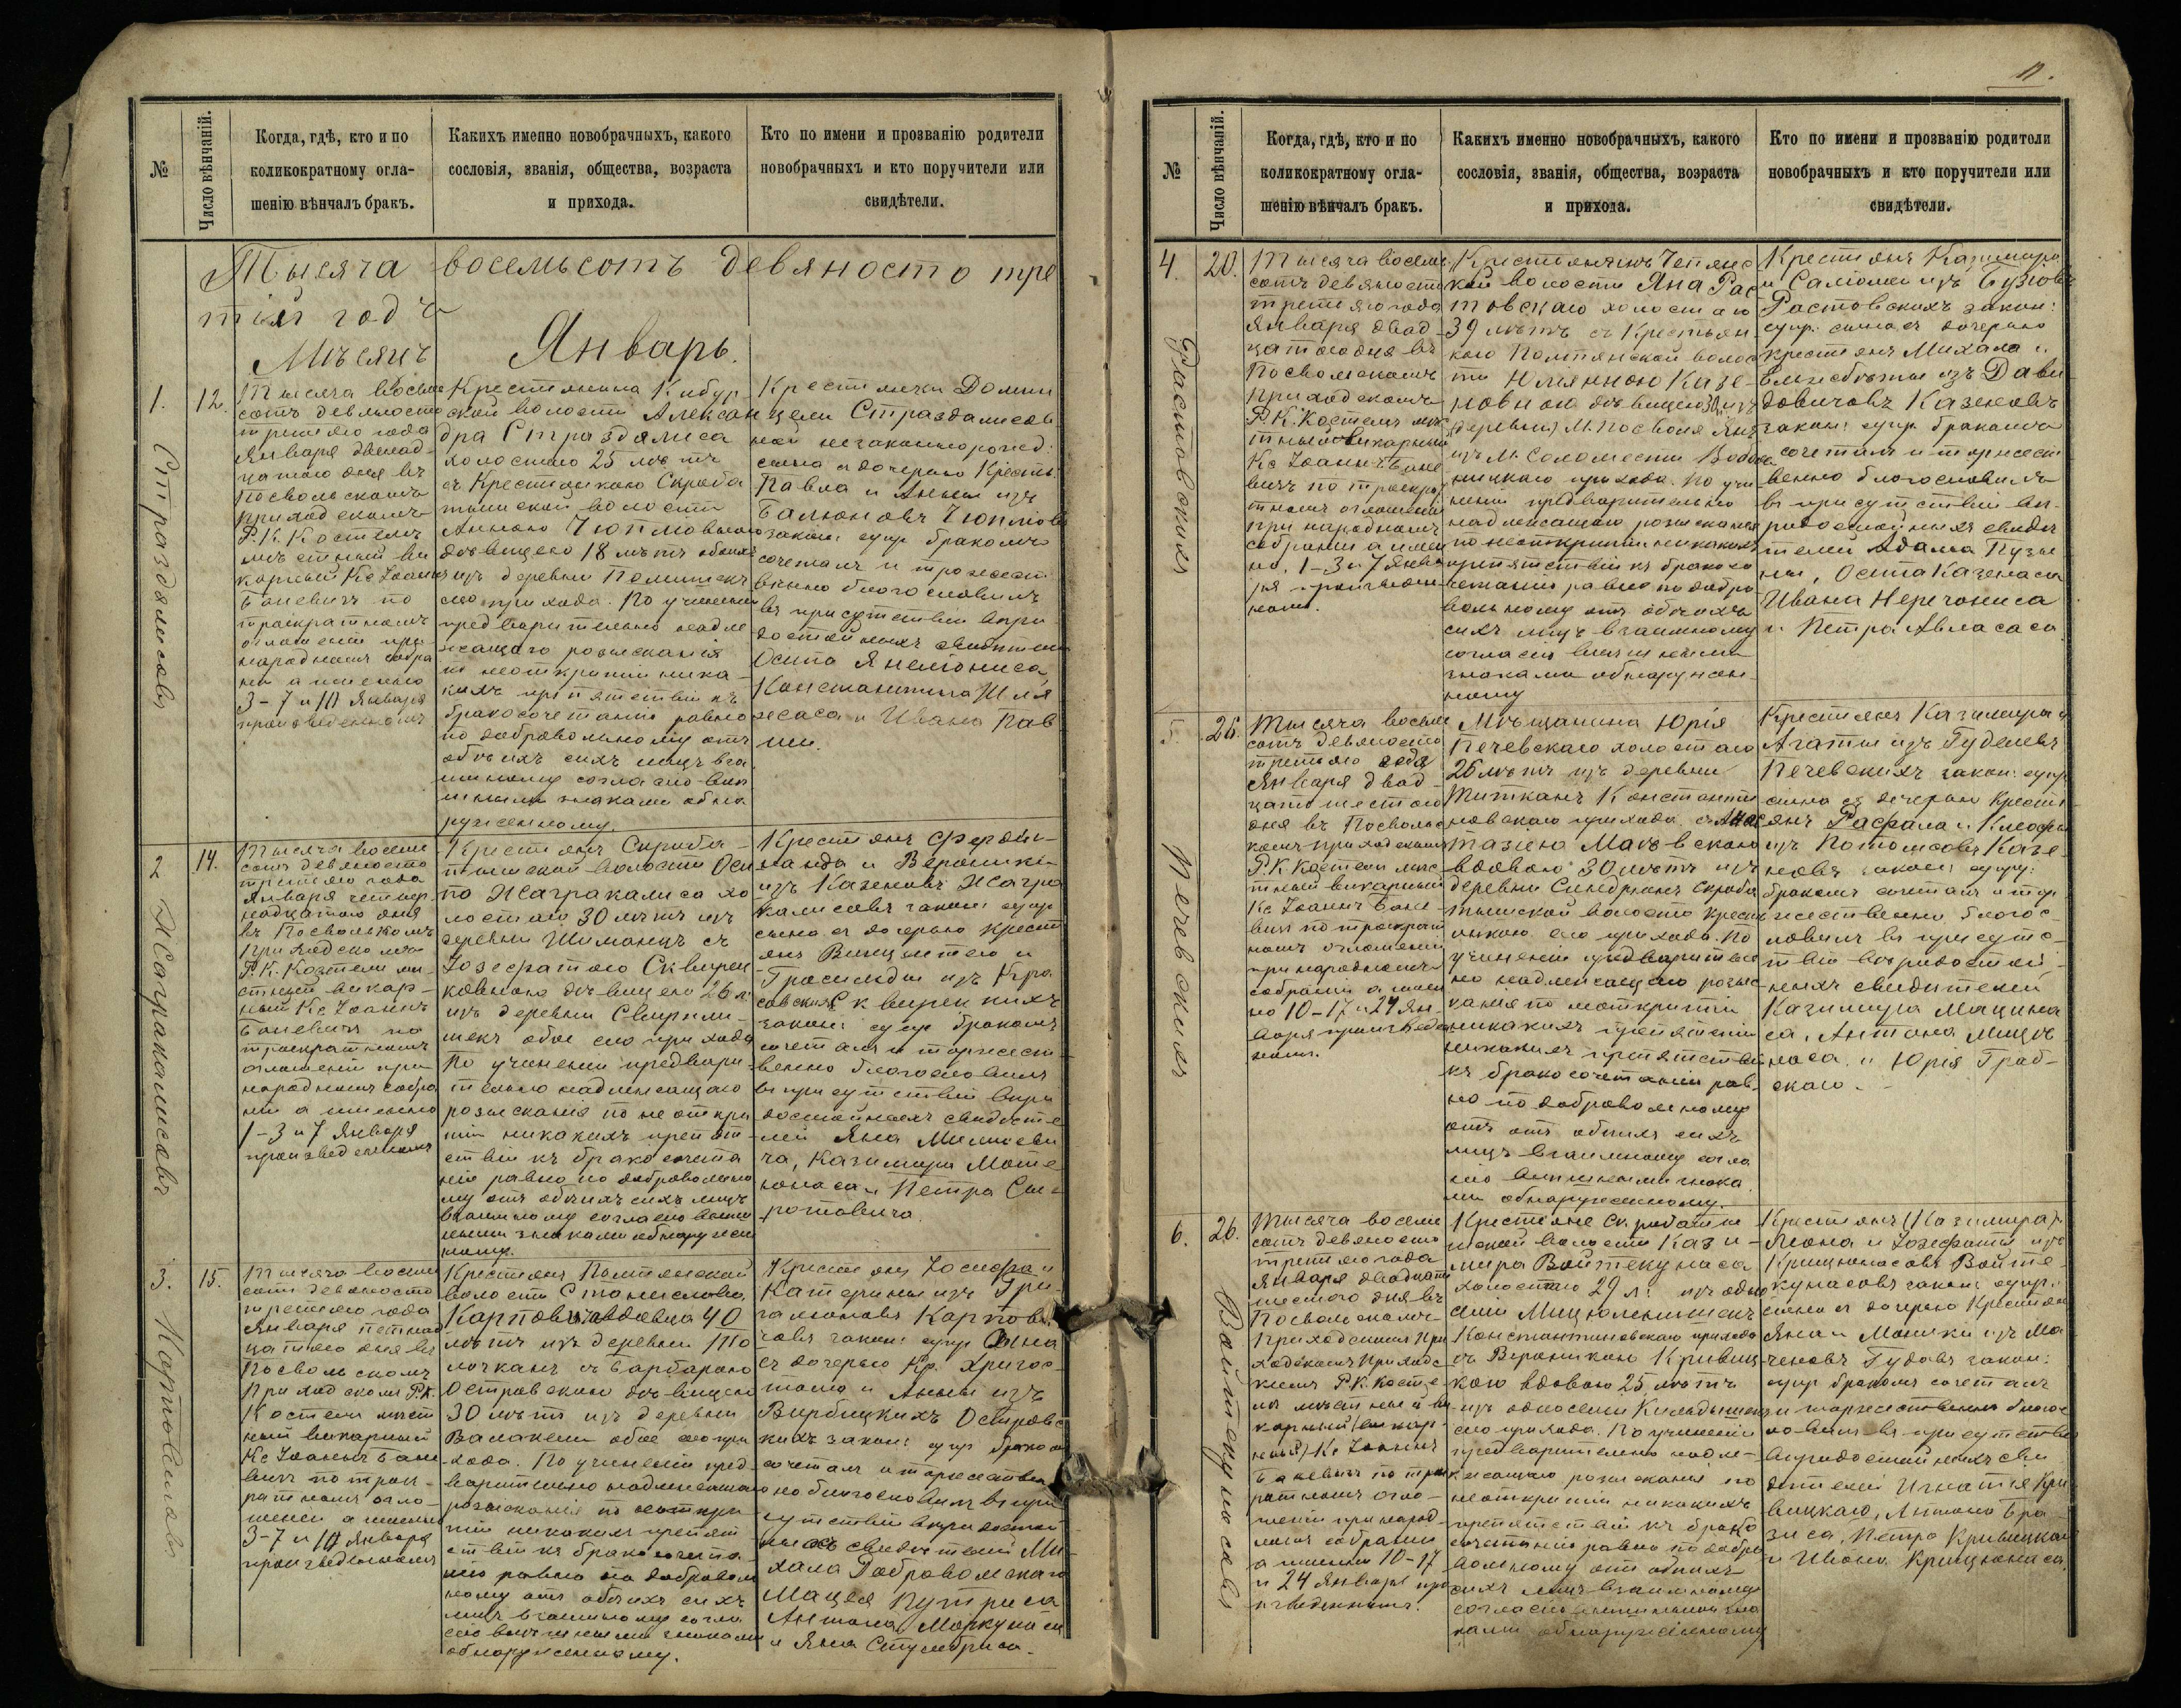 11.
№
Число вѣнчаній.
Когда, гдѣ, кто и по
коликократному огла-
шенію вѣнчалъ бракъ.
Какихъ именно новобрачныхъ, какого
сословія, званія, общества, возраста
и прихода.
Кто по имени и прозванію родители
новобрачныхъ и кто поручители или
свидѣтели.
Тысяча восемьсотъ девяносто тре
тій годъ
Мѣсяцъ Январь.
1.
Страздялисовъ
12.
Тысяча восемь
сотъ девяносто
третьяго года
Января двенад
цатаго дня въ
Посвольскомъ
приходскомъ
Р. К. Костелѣ
мѣстный ви
карный Кс Іоаннъ
Баневичъ по
троекратномъ
оглашеніи при
народномъ собра
ніи а именно
3-7 и 10 Января
произведенномъ
Крестьянина Кибур
ской волости Алексан
дра Страздялиса
холостаго 25 лѣтъ
съ Крестьянкою Скроба
тишской волости
Анною Чюплювною
дѣвицею 18 лѣтъ обоихъ
изъ деревни
сего прихода. По учиненіи
предварительно надле
жащаго розысканія
по неоткрытіи ника-
кихъ препятствій къ
бракосочетанію равно
по добровольному отъ
обѣихъ сихъ лицъ вза
имному согласію внѣ
шними знаками обна
руженному.
Крестьянки Домини
цели Страздялисов
ной незаконнорожд:
сына съ дочерью Крест:
Павла и Анны изъ
Балюновъ Чюплювъ
закон: супр: бракомъ
сочеталъ и торжест
венно благословилъ
въ присутствіи впри
достойныхъ свидѣтелей
Осипа Янелюниса,
Константина Шля
жаса и Ивана Пав
ши.
2
Жаграколисовъ
14.
Тысяча восемь
сотъ девяносто
третьяго года
Января четыр
надцатаго дня
въ Посвольскомъ
Приходскомъ
Р. К. Костели мѣ-
стный викар-
ный Кс Іоаннъ
Баневичъ по
троекратномъ
оглашеніи при
народномъ собра
ніи а именно
1-3 и 7 Января
произведенномъ
Крестьянъ Скроба-
тишской волости Оси
па Жагракалиса хо
лостаго 30 лѣтъ изъ
деревни Шиманцъ съ
Іозефатою Сквирец
ковною дѣвицею 26 л:
изъ деревни Свирпли-
шекъ обое сего прихода
По учиненіи предвари
тельно надлежащаго
розысканія по не откры
тіи никакихъ препят
ствій къ бракосочета
нію равно по добровольно
му отъ обѣихъ сихъ лицъ
взаимному согласію внѣш
ными знаками обнаружен
ному.
Крестьянъ Ферди-
нанда и Вероники
изъ Казеновъ Жагра
калисовъ закон: супр
сына съ дочерью Крест
янъ Винцентего и
Гросильды изъ Кра
совскихъ Сквирецкихъ
закон: супр: бракомъ
сочеталъ и торжест
венно благословилъ
въ присутствіи впри
достойныхъ свидѣте
лей Яна Милиеви
ча, Казимира Моте
юнаса и Петра Сы-
ротовича.
3.
Карповичовъ
15.
Тысяча восемь
сотъ девяносто
третьяго года
Января пятнад
цатаго дня въ
Посвольскомъ
Приходскомъ Р. К.
Костели мѣст
ный викарный
Кс Іоаннъ Бане
вичъ по трек
ратномъ огла-
шеніи а именно
3-7 и 10 Января
произведенномъ
Крестьянъ Помпянской
волости Станислава
Карповича вдовца 40
лѣтъ изъ деревни
съ Барбарою
Островскою дѣвицею
30 лѣтъ изъ деревни
Валакели обое сего при
хода. По учиненіи пред
варительно надлежащаго
розысканія по неоткры
тіи никакихъ препят
ствій къ бракосочета
нію равно по доброволь
ному отъ обѣихъ сихъ
лицъ взаимному согла
сію внѣшними знаками
обнаруженному.
Крестьянъ Іосифа и
Катерины изъ Гри
галюновъ Карпови
човъ закон: супр: сына
съ дочерью Кр: Христос-
тома и Анны изъ
Вирбицкихъ Островс
кихъ закон: супр: бракомъ
сочеталъ и торжествен
но благословилъ въ при
сутствіи впридостой
ныхъ свидѣтелей Ми
хала Добровольскаго
Мацея Путриса
Антона Моркунаса
и Яна Стумбриса.
№
Число вѣнчаній.
Когда, гдѣ, кто и по
коликократному огла-
шенію вѣнчалъ бракъ.
Какихъ именно новобрачныхъ, какого
сословія, званія, общества, возраста
и прихода.
Кто по имени и прозванію родители
новобрачныхъ и кто поручители или
свидѣтели.
4.
Растовскихъ
20.
Тысяча восемь
сотъ девяносто
третьяго года
Января двад
цатаго дня въ
Посвольскомъ
приходскомъ
Р. К. Костелѣ мѣс
тный викарный
Кс Іоаннъ Бане
вичъ по троекра
тномъ оглашеніи
при народномъ
собраніи а имен
но, 1-3 и 7 Янва
ря произведен
номъ.
Крестьянинъ Чепянс
кой волости Яна Рас
товскаго холостаго
39 лѣтъ съ Крестьян
кою Помпянской волос
ти Юліянною Казе-
новною дѣвицею 30 л: изъ
деревни М. Посволя Янъ
изъ М. Соломести Вабол
ницкаго прихода. По учи
неніи предварительно
надлежащаго розысканія
по неоткрытіи никакихъ
препятствій къ бракосо
четанію равно по добро
вольному отъ обѣихъ
сихъ лицъ взаимному
согласію внѣшними
знаками обнаружен
ному
Крестьянъ Казимира
и Саломеи изъ Бузіовъ
Растовскихъ закон:
супр: сына съ дочерью
крестьянъ Михала и
Елисабеты изъ Дави
довичовъ Казеновъ
закон: супр. бракомъ
сочеталъ и торжест
венно благословилъ
въ присутствіи вп.
ридостойныхъ свидѣ
телей Адама Пузы
ны, Осипа Казенаса
Ивана Неречониса
и Петра Авласаса
5.
Печевскихъ
26.
Тысяча восемь
сотъ девяносто
третьяго года
Января двад
цать шестаго
дня въ Посвольс
комъ приходскомъ
Р. К. Костели мѣс
тный викарный
Кс Іоаннъ Бане-
вичъ по троекрат
номъ оглашеніи
при народномъ
собраніи а имен
но 10-17 и 24 Ян-
варя произведен
номъ.
Мѣщанина Юрія
Печевскаго холостаго
26 лѣтъ изъ деревни
Титканъ Константи
новскаго прихода съ Анас
тазіею Мацѣвскою
вдовою 30 лѣтъ изъ
деревни Синдрюнъ Скроба
тишской волости крест
янкою сего прихода. По
учиненіи предваритель
но надлежащаго розыс
канія по неоткрытіи
никакихъ препятствій
никакихъ препятствій
къ бракосочетанію рав
но по добровольному
отъ отъ обѣихъ сихъ
лицъ взаимному согла
сію внѣшними знака
ми обнаруженному.
Крестьянъ Казимира и
Агаты изъ Гуделевъ
Печевскихъ закон: супр
сына съ дочерью Крест
янъ Рафала и Клеофы
изъ Потомсовъ Казе-
новъ закон: супр:
бракомъ сочеталъ и тор
жественно благос-
ловилъ въ присутс-
твіи впридостой-
ныхъ свидѣтелей
Казимира Мацина
са, Антона Мицѣ
наса и Юрія Граб-
скаго.
6.
Войтекунасовъ
26.
Тысяча восемь
сотъ девяносто
третьяго года
Января двадцать
шестаго дня въ
Посвольскомъ
Приходскомъ При
ходскомъ Приходс
кимъ Р. К. Косте-
лѣ мѣстный ви
карный (викар-
ный) Кс Іоаннъ
Баневичъ по трек
ратномъ огла-
шеніи при народ-
номъ собраніи
а именно 10-17
и 24 Января про
изведенномъ.
Крестьяне Скробатиш
шской волости Кази-
мира Войтекунаса
холостаго 29 л: изъ одно
сели Мицюлишекъ
Константиновскаго прихода
съ Вероникою Кривиц
кою вдовою 25 лѣтъ
изъ односели Кильдышекъ
сего прихода. По учиненіи
предварительно надле-
жащаго розысканія по
неоткрытіи никакихъ
препятствій къ брако
сочетанію равно по добро
вольному отъ обѣихъ
сихъ лицъ взаимному
согласію внѣшними зна
ками обнаруженному
Крестьянъ (Казимира)
Яона и Іозефаты изъ
Крицюнасовъ Войте-
кунасовъ закон: супр:
сына съ дочерью Крестьян
Яна и Моники изъ Ма
ченовъ Гудовъ закон:
супр: бракомъ сочеталъ
и торжественно благос
ловилъ въ присутствіи
впридостойныхъ сви
дѣтелей Игнатія Кри
вицкаго, Антона Бра-
зиса, Петра Кривицкаго
и Ивана Крицюнаса